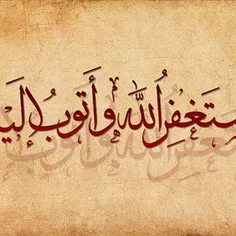 ستَغفِرُ الله وأَتوبُ إلَي